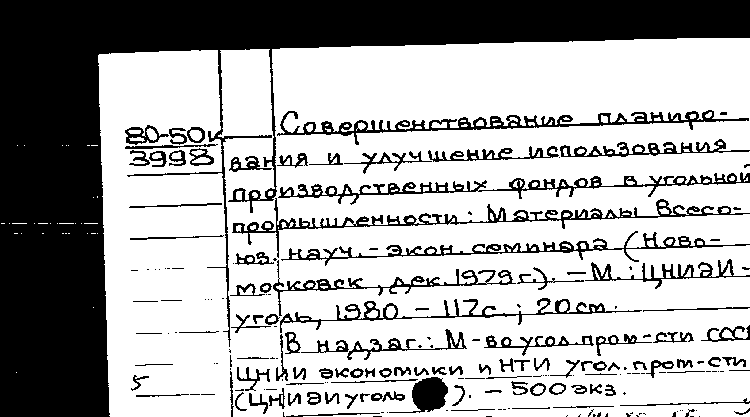 80-50к
3998
Совершенствование планиро-
вания и улучшение использования
производственных фондов в угольной
промышленности: Материалы Всесо-
юз. науч.-экон. семинара (Ново-
московск, дек. 1979 г.). — М.: ЦНИЭИ-
уголь, 1980. — 117с.; 20 см.
В надзаг.: М-во угол. пром-сти СССР
ЦНИИ экономики и НТИ угол. пром-сти
5
(ЦНИЭИуголь ). — 500 экз.